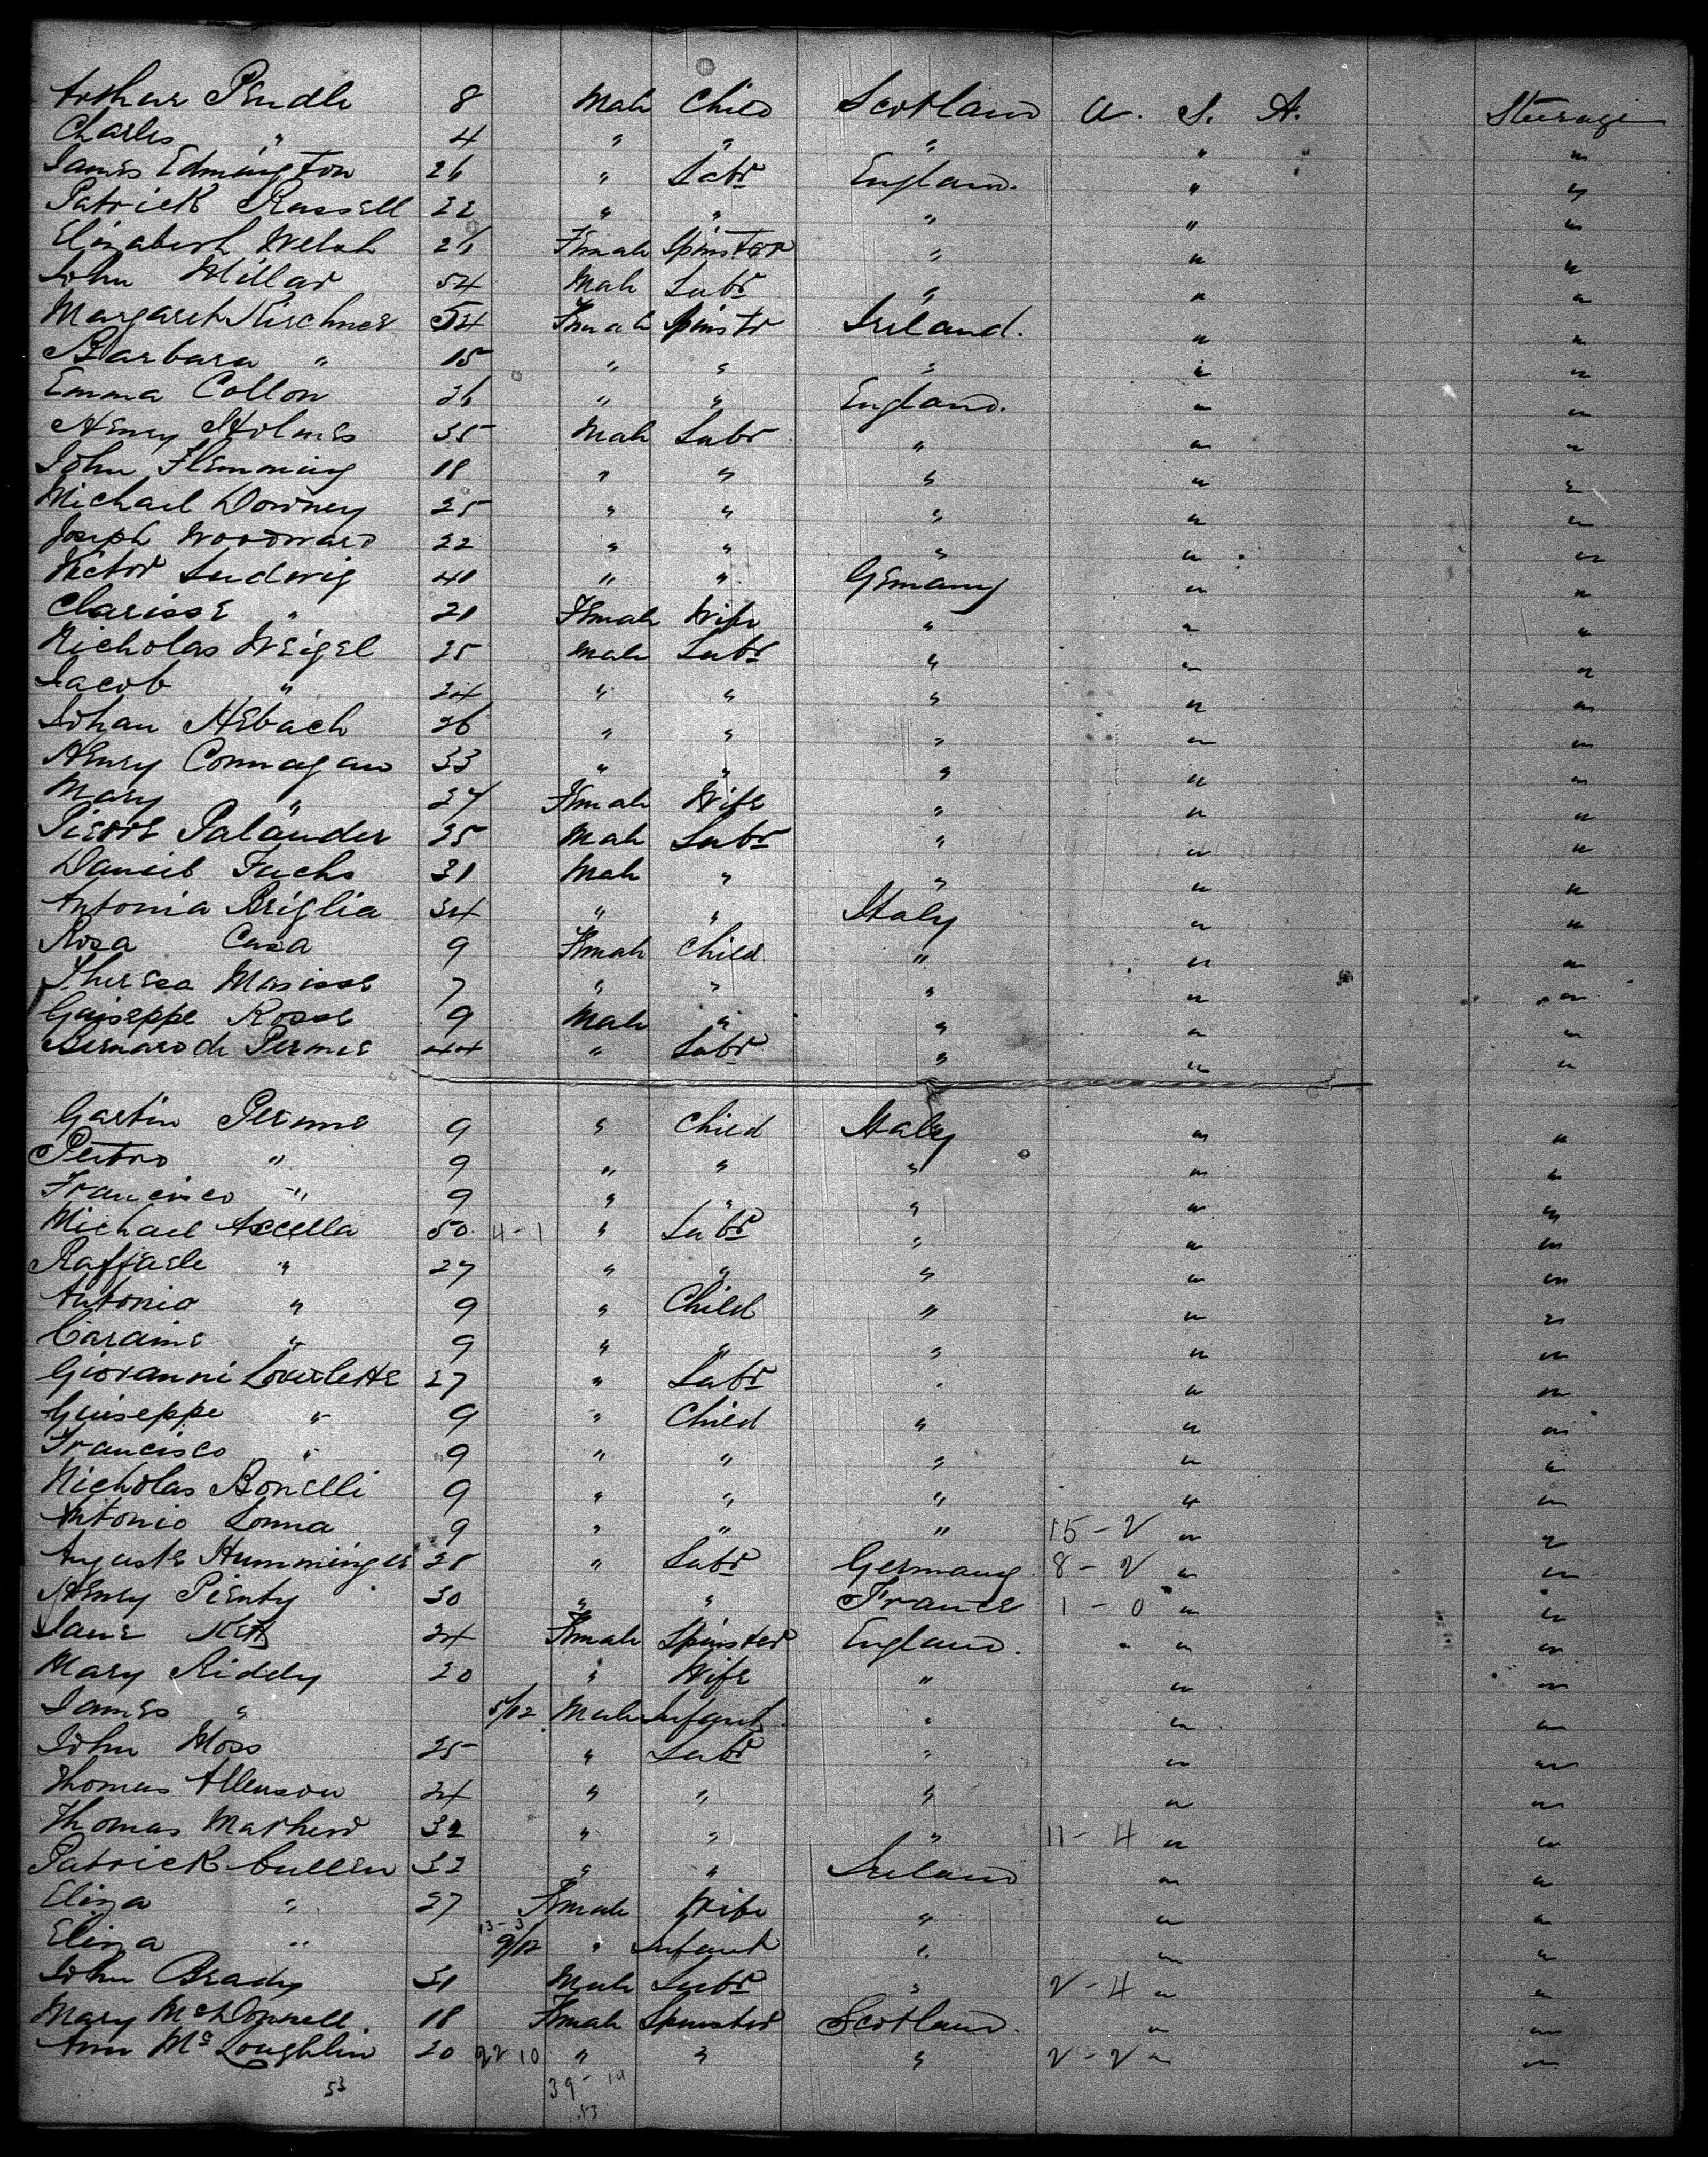 Arthur Pendle 8 Male Child Scotland U. S. A. Steerage
Charles " 4 " " " " "
James Edmington 26 " Labr England. " "
Patrick Russell 22 " " " " "
Elizabeth Welsh 26 Female Spinster " " "
John Millar 54 Male Labr " " "
Margaret Kirchner 54 Female Spinstr Ireland. " "
Barbara " 15 " " " " "
Emma Collon 26 " " England. " "
Henry Holmes 35 Male Labr " " "
John Flemming 18 " " " " "
Michael Downey 25 " " " " "
Joseph Woodward 22 " " " " "
Victor Ludwig 41 " " Gemany " "
Clarisse " 21 Female Wife " " "
Nicholas Weigel 25 Male Labr " " "
Jacob " 24 " " " " "
Johan Hebach 26 " " " " "
Henry Connagan 33 " " " " "
Mary " 27 Female Wife " " "
Pierre Palander 25 Male Labr " " "
Daniel Fuchs 31 Male " " " "
Antonia Briglia 34 " " Italy " "
Rosa Casa 9 Female Child " " "
Theresa Masisse 7 " " " " "
Guiseppe Rosse 9 Male " " " "
Bernardo de Perme 44 " Labr " " "
Gartin Perme 9 " Child Italy " "
Peitro " 9 " " " " "
Francisco " 9 " " " " "
Michael Accella 50 4-1 " Labr " " "
Raffaele " 27 " " " " "
Antonio " 9 " Child " " "
Caraime " 9 " " " " "
Giovanni 27 " Labr " " "
Guiseppe " 9 " Child " " "
Francisco " 9 " " " " "
Nicholas Bonelli 9 " " " " "
Antonio Lonna 9 " " " 15-2 " "
Auguste Humminger 28 " Labr Germany 8-2 " "
Henry Pienty 30 " " France 1-0 " "
Jane 24 Female Spinster England. " "
Mary Riddy 20 " Wife " " "
James " 5/12 Male Infant " " "
John Moss 25 " Labr " " "
Thomas Allenson 24 " " " " "
Thomas Mathew 32 " " " 11-4 " "
Patrick Cullen 32 " " Ireland " "
Eliza " 27 Female Wife " " "
13-3
Eliza " 9/12 " Infant " " "
John Brady 31 Male Labr " 2-4 " "
Mary McDonnell. 18 Female Spinster Scotland. " "
Ann McLoughlin 20 22 10 " " " 2-2 " "
53 39-14
53